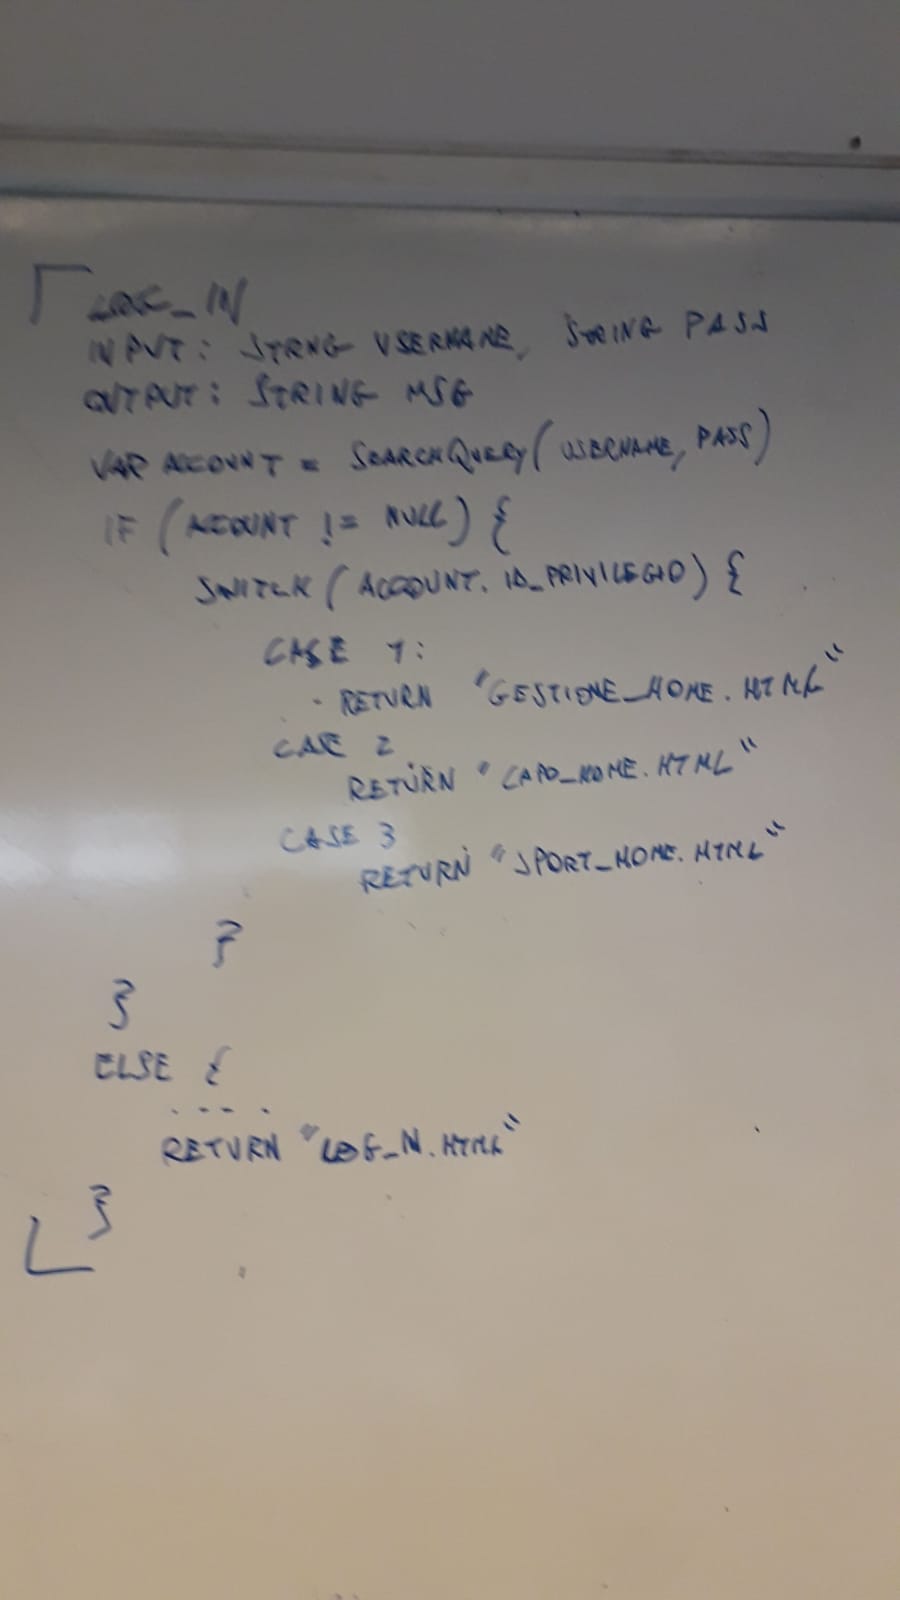 LOG_IN
INPUT: STRNG USERNAME, STRING PASS
OUTPUT: STRING MSG
VAR ACCOUNT = SEARCHQUERY(USERNAME, PASS)
IF (ACCOUNT != NULL) {
SWITCH (ACCOUNT. ID_PRIVILEGIO) {
CASE 1:
RETURN "GESTIONE_HOME.HTML"
CASE 2
RETURN "CAPO_HOME.HTML"
CASE 3
RETURN "SPORT_HOME.HTML"
}
}
ELSE {
....
RETURN "LOG_IN.HTML"
}